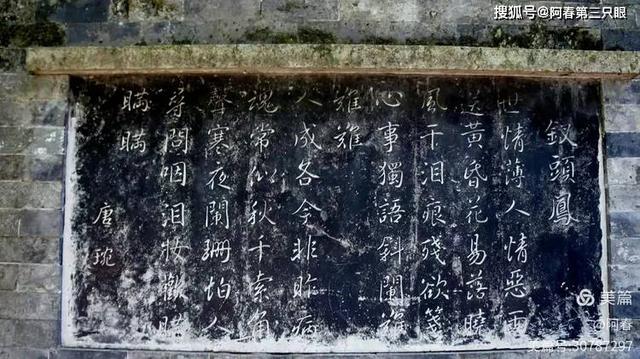 搜狐号@阿春第三只眼
釵頭鳳
世情薄人情惡雨
送黃昏花易落曉
風干泪痕殘欲箋
心事獨語斜闌難
難難
人成各今非昨病
魂常似秋千索角
聲寒夜闌珊怕人
尋問咽泪妝歡瞞
瞞瞞
唐琬
美篇
@阿春
美篇号:30787297